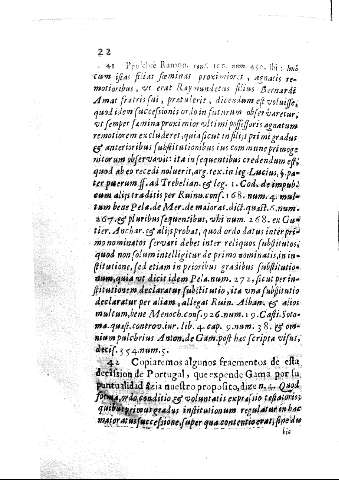 22
41 Pulchrè Ramon. conf. 100. num. 450. ibi: Inde
cum istas filias fæminas proximiores, agnatis re-
motioribus, ut erat Raymundetus filius Bernardi
Amat fratris sui, prætulerit, dicendum est voluisse,
quod idem successionis ordo in futurum observaretur,
ut semper fæmina proximior ultimi possessoris agnatum
remotiorem excluderet, quia sicut in filijs primi gradus
& anterioribus substitutionibus ius commune primoge
nitorum observavit: ita in sequentibus credendum est,
quod ab eo recedi noluerit, arg. tex. in leg. Lucius, §. pa-
ter puerum ff. ad Trebelian. & leg. 1. Cod. de impub.
cum alijs traditis per Ruin. conf. 168. num. 4. mul-
tum bene Pela. de Mer. de maiorat. dict. quæst. 6. num.
267. & pluribus sequentibus, ubi num. 268. ex Gu-
tier. Anchar. & alijs probat, quod ordo datus inter pri-
mo nominatos servari debet inter reliquos substitutos,
quod non solum intelligitur de primo nominatis, in in-
stitutione, sed etiam in prioribus gradibus substitutio-
num, quia ut dicit idem Pela. num. 272. sicut per in-
stitutionem declaratur substitutio, ita una substitutio
declaratur per aliam, allegat Ruin. Alban. & alios
multum, bene Menoch. conf. 926. num. 19. Casti. Soto-
ma. quæst. controv. iur. lib. 4. cap. 9. num. 38. & om-
nium pulchrius Anton. de Gam. post hæc scripta visus,
decis. 354. num. 5.
42 Copiaremos algunos fracmentos de esta
decission de Portugal, que expende Gama por su
puntualidad àzia nuestro proposito, dize n. 4. Quod
forma, ordo, conditio & voluntatis expressio testatoris,
quibus primus gradus institutionum regulatur in hac
maioratus successione, super qua contentio erat, sine du
bio